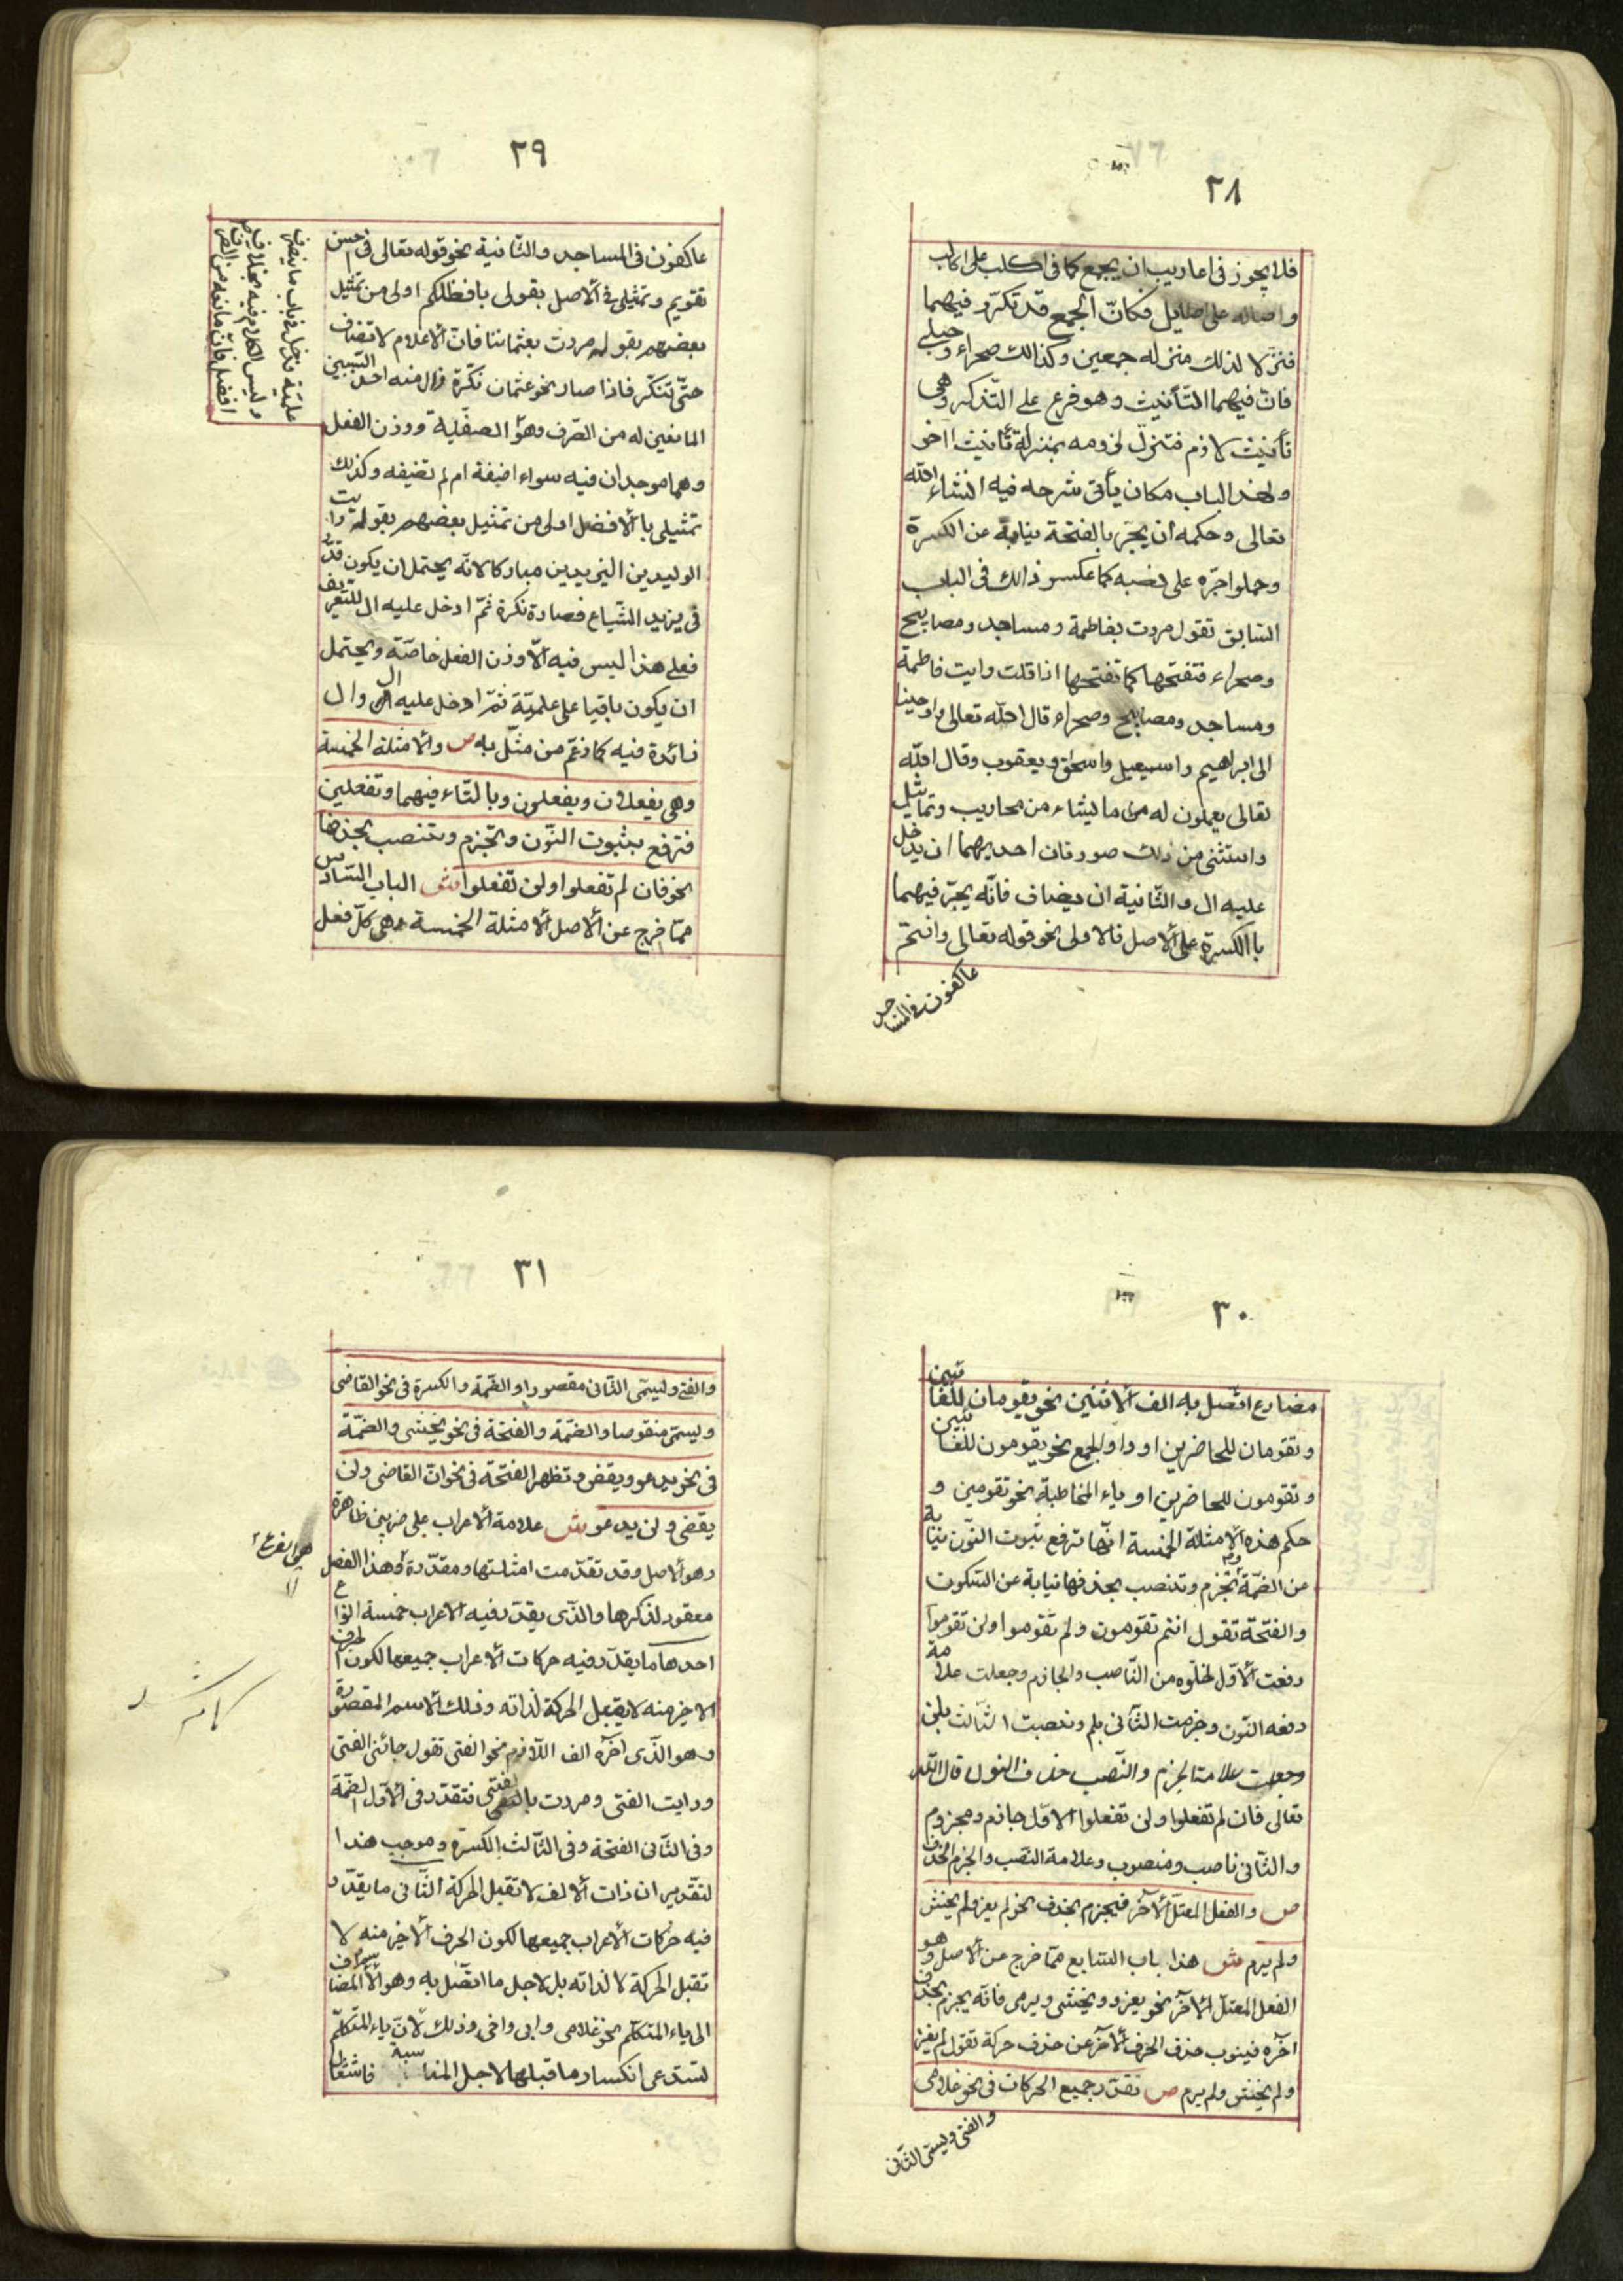 ٢٨
فلا يجوز فى اعاريب ان يجمع كما فى اكلب على اكالب
واصاله على اصايل فكانّ الجمع قد تكرّر فيهما
فنزلا لذلك منزله جمعين وكذالك صحراء وحبلى
فان فيهما التّأنيث وهو فرع على التّذكير وهى
تأنيث لازم فتنزل لزومه بمنزلة تأنيث اخر
ولهذ الباب مكان يأتى شرحه فيه انشاء الله
تعالى وحكمه ان يجرّ بالفتحة نيابة عن الكسرة
وحملوا جرّه على نصبه كما عكسو ذالك فى الباب
السّابق تقول مررت بفاطمة ومساجد ومصابيح
وصحراء فتفتحها كما تفتحها اذا قلت رايت فاطمة
ومساجد ومصابيح وصحراء قال الله تعالى واوحينا
الى ابراهيم واسمعيل واسحق ويعقوب وقال الله
تعالى يعملون له من ما يشاء من محاريب وتماثيل
واستثنى من ذلك صورتان احديهما ان يدخل
عليه ال والثّانية ان يضاف فانّه يجرّ فيهما
باالكسرة على الأصل فالاولى نحو قوله تعالى وانتم
عاكفون فى المساجد
٢٩
عاكفون فى المساجد والثّانية نحو قوله تعالى فى احسن
تقويم وتمثيلى فى الأصل بقولى بافضلكم اولى من تمثيل
بعضهم بقوله مررت بعثماننا فانّ الأعلام لا تضاف
حتّى تتنكّر فاذا صار نحو عثمان نكرة زال منه احد السّببين
المانعين له من الصّرف وهو العلميّة
علميّة فدخل فى باب ما ينصرف
وليس الكلام فيه بخلاف
افضل فانّ مانعه من الصرف
الصفية ووزن الفعل
وهما موجدان فيه سواء اضيفة ام لم تضيفه وكذلك
تمثيلى باالأفضل اولى من تمثيل بعضهم بقوله رايت
الوليد بن اليزيد بن مباركا لانّه يحتمل ان يكون قدّر
فى يزيد الشّياع فصارة نكرة ثمّ ادخل عليه ال للتّعريف
فعلى هذا ليس فيه الّا وزن الفعل خاصّة ويحتمل
ان يكون باقيا على علميّة ثمّ ادخل عليه ال وال
زائدة فيه كما زعم من مثّل به ص والأمثلة الخمسة
وهى يفعلان ويفعلون وبالتّاء فيهما وتفعلين
فترفع بثبوت النّون وتجزم وتنصب بحذفها
نحو فان لم تفعلوا ولن تفعلوا ش الباب السّادس
ممّا خرج عن الأصل الأمثلة الخمسة وهى كلّ فعل
٣٠
مضارع اتّصل به الف الأثنين نحو يقومان للغائبين
وتقومان للحاضرين او واو الجمع نحو يقومون للغائبين
وتقومون للحاضرين او ياء المخاطبة نحو تقومين و
حكم هذه الأمثلة الخمسة انّها ترفع بثبوت النّون نيابة
عن الضّمّة وتجزم وتنصب بحذفها نيابة عن السّكون
والفتحة تقول انتم تقومون ولم تقوموا ولن تقوموا
رفعت الأوّل لخلّوه من النّاصب والجازم وجعلت علامة
رفعه النّون وجزمت الثّانى بلم ونصبت الثّالث بلن
وجعلت علامة الجزم والنّصب حذف النون قال الله
تعالى فان لم تفعلوا ولن تفعلوا الاوّل جازم ومجزوم
والثّانى ناصب ومنصوب وعلامة النّصب والجزم الحذف
ص والفعل المعتلّ الآخر فيجزم بحذف نحو لم يغز ولم يخش
ولم يرم ش هذا باب السّابع ممّا خرج عن الأصل وهو
الفعل المعتلّ الآخر نحو يغزو ويخشى ويرمى فانّه يجزم بحذف
آخره فينوب حذف الحرف الآخر عن حذف حركة تقول لم يغز
ولم يخش ولم يرم ص تقدّر جميع الحركات فى نحو غلامى
والفتى ويسمّى الثّانى
٣١
والفتى ويسمّى الثّانى مقصورا والضّمّة والكسرة فى نحو القاضى
ويسمّى منقوصا والضمّة والفتحة فى نحو يخشى والضمّة
فى نحو يدعو ويقضى وتظهر الفتحة فى نحو انّ القاضى ولن
يقضى ولن يدعو ش علامة الأعراب على ضربين ظاهرة
وهو الأصل وقد تقدّمت امثلتها ومقدّرة وهذا الفصل
معقود لذكرها والّذى يقدّر فيه الاعراب خمسة انواع
احدها ما يقدّر فيه حركات الأعراب جميعها لكون الحرف
الاخير منه لا يقبل الحركة لذاته وذلك الأسم المقصورة
وهو الّذى آخره الف اللّازم نحو الفتى تقول جائنى الفتى
ورايت الفتى ومررت بالفتى فتقدّر فى الأوّل الضّمّة
وفى الثّانى الفتحة وفى الثّالث الكسرة وموجب هذا
لتقدير ان ذات الألف لا تقبل الحركة الثّانى ما يقدّر
فيه حركات الأعراب جميعها لكون الحرف الأخير منه لا
تقبل الحركة لا لذاته بل لاجل ما اتّصل به وهو الأسم المضاف
الى ياء المتكلّم نحو غلامى وابى واخى وذلك لأنّ ياء المتكلّم
تستدعى انكسار ما قبلها لاجل المناسبة فاشتغال